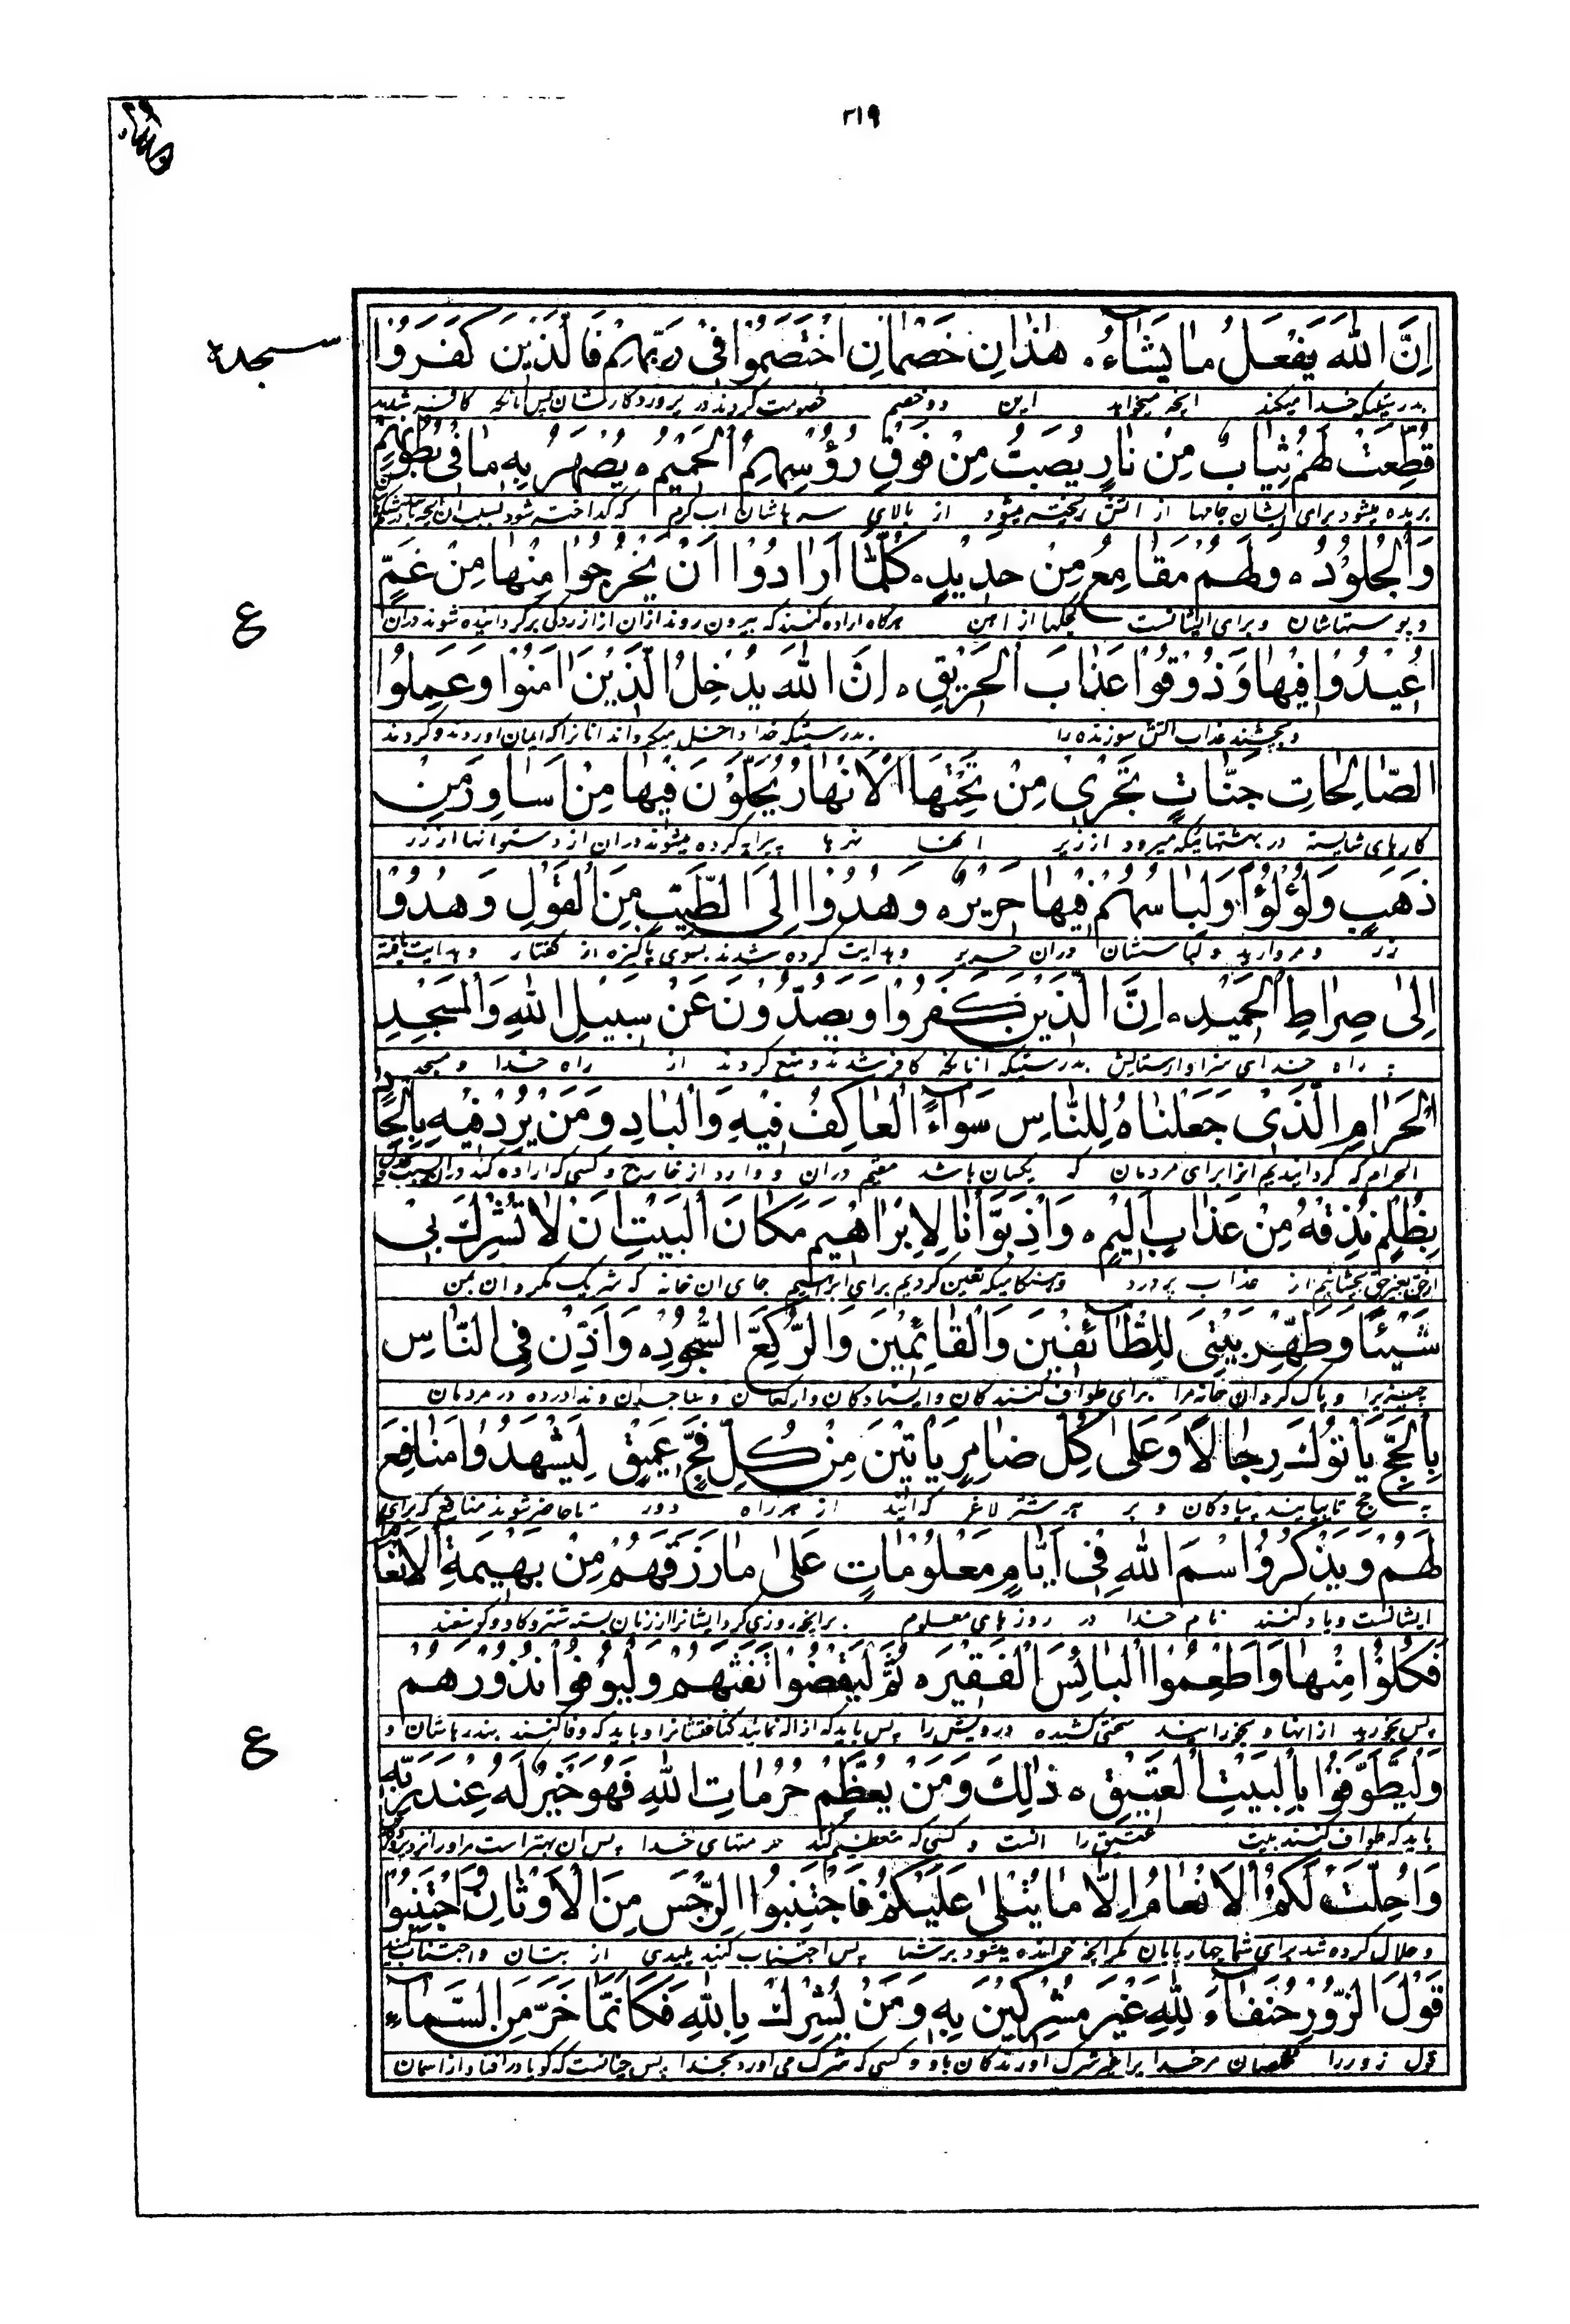 ٢١٩
سجدة
اِنَّ اللّٰهَ يَفْعَلُ مٰا يَشٰاۤءُ ه هٰذٰانِ خَصْمٰانِ اخْتَصَمُوْا فِىْ رَبِّهِمْ فَالَّذِيْنَ كَفَرَوُا
بدرستیکه خدا میکند آنچه میخواهد این دو خصم خصومت کردند در پروردکارشان پس آنانکه کافر شدند
قُطِّعَتْ لَهُمْ ثِيٰابٌ مِنْ نٰارٍ يُصَبُّ مِنْ فَوْقِ رُؤُسِهِمُ الْحَمِيْمُ ه يُصْهَرُ بِهِ مٰا فِىْ بُطُوْنِهِمْ
بریده میشود برای ایشان جامها از آتش ریخته میشود از بالای سرهاشان آب کرم که کداخته شود بسبب آن آنچه در شکم
وَالْجُلُوْدُ ه وَلَهُمْ مَقٰامِعُ مِنْ حَدِيْدٍ ه كُلَّمٰا اَرٰادُوْا اَنْ يَخْرُجُوْا مِنْهٰا مِنْ غَمٍّ
و پوستهاشان و برای ایشانست از آهن هرکاه اراده کنند که بیرون روند از آن از آزردکی برکردانیده شوند در آن
ع
اُعِيْدُوْا فِيْهٰا وَذُوْقُوْا عَذٰابَ الْحَرِيْقِ ه اِنَّ اللّٰهَ يُدْخِلُ الَّذِيْنَ اٰمَنُوْا وَعَمِلُوا
و بچشند عذاب آتش سوزنده را بدرستیکه خدا داخل میکرداند آنانرا که ایمان آوردند و کردند
الصّٰالِحٰاتِ جَنّٰاتٍ تَجْرِىْ مِنْ تَحْتِهَا الْاَنْهٰارُ يُحَلَّوْنَ فِيْهٰا مِنْ اَسٰاوِرَ مِنْ
کارهای شایسته در بهشتهائیکه میرود از زیر آنها نهرها پیرایه کرده میشوند در آن از دستوانها از زر
ذَهَبٍ وَلُؤْلُؤًا وَلِبٰاسُهُمْ فِيْهٰا حَرِيْرٌ ه وَهُدُوْا اِلَى الطَّيِّبِ مِنَ الْقَوْلِ وَهُدُوْا
زر و مروارید و لباسشان در آن حریر و هدایت کرده شدند بسوی پاکیزه از کفتار و هدایت یافته
اِلٰى صِرٰاطِ الْحَمِيْدِ ه اِنَّ الَّذِيْنَ كَفَرُوْا وَيَصُدُّوْنَ عَنْ سَبِيْلِ اللّٰهِ وَالْمَسْجِدِ
براه خدای سزاوار ستایش بدرستیکه آنانکه کافر شدند و منع کردند از راه خدا و مسجد
الْحَرٰامِ الَّذِىْ جَعَلْنٰاهُ لِلنّٰاسِ سَوٰاۤءً الْعٰاكِفُ فِيْهِ وَالْبٰادِ وَمَنْ يُرِدْ فِيْهِ بِاِلْحٰادٍ
الحرام که کردانیدیم آنرا برای مردمان که یکسان باشد مقیم در آن و وارد از خارج و کسی که اراده کند در آن
بِظُلْمٍ نُذِقْهُ مِنْ عَذٰابٍ اَلِيْمٍ ه وَاِذْ بَوَّأْنٰا لِاِبْرٰاهِيْمَ مَكٰانَ الْبَيْتِ اَنْ لٰا تُشْرِكْ بِىْ
بچشانیم از عذاب پر درد و هنکامیکه تعیین کردیم برای ابراهیم جای آن خانه که شریک مکردان بمن
شَيْئًا وَطَهِّرْ بَيْتِىَ لِلطّٰاۤئِفِيْنَ وَالْقٰائِمِيْنَ وَالرُّكَّعِ السُّجُوْدِ ه وَاَذِّنْ فِى النّٰاسِ
چیزیرا و پاک کردان خانه مرا برای طواف کنندکان و ایستادکان و راکعان و ساجدان و ندا درده در مردمان
بِالْحَجِّ يَأْتُوْكَ رِجٰالًا وَعَلٰى كُلِّ ضٰامِرٍ يَأْتِيْنَ مِنْ كُلِّ فَجٍّ عَمِيْقٍ لِيَشْهَدُوْا مَنٰافِعَ
به حج تا بیایند پیادکان و بر هر شتر لاغر که آیند از هر راه دور تا حاضر شوند منافع که برای
لَهُمْ وَيَذْكُرُوْا اسْمَ اللّٰهِ فِىْ اَيّٰامٍ مَعْلُوْمٰاتٍ عَلٰى مٰا رَزَقَهُمْ مِنْ بَهِيْمَةِ الْاَنْعٰامِ
ایشانست و یاد کنند نام خدا در روزهای معلوم بر آنچه روزی کرد ایشانرا از زبان بسته شتر و کاو و کوسفند
فَكُلُوْا مِنْهٰا وَاَطْعِمُوا الْبٰائِسَ الْفَقِيْرَ ه ثُمَّ لْيَقْضُوْا تَفَثَهُمْ وَلْيُوْفُوْا نُذُوْرَهُمْ
پس بخورید از آنها و بخورانید سختی کشیده درویش را پس باید که ازاله نمایند کثافتشانرا و باید که وفا کنند بنذرهاشان و
ع
وَلْيَطَّوَّفُوْا بِالْبَيْتِ الْعَتِيْقِ ه ذٰلِكَ وَمَنْ يُعَظِّمْ حُرُمٰاتِ اللّٰهِ فَهُوَ خَيْرٌ لَهُ عِنْدَ رَبِّهِ
باید که طواف کنند بیت عتیق را آنست و کسی که تعظیم کند حرمتهای خدا پس آن بهتر است مر او را نزد
وَاُحِلَّتْ لَكُمُ الْاَنْعٰامُ اِلّٰا مٰا يُتْلٰى عَلَيْكُمْ فَاجْتَنِبُوا الرِّجْسَ مِنَ الْاَوْثٰانِ وَاجْتَنِبُوْا
و حلال کرده شد برای شما چهارپایان مکر آنچه خوانده میشود بر شما پس اجتناب کنید پلیدی از بتان و اجتناب کنید
قَوْلَ الزُّوْرِ حُنَفٰاۤءَ لِلّٰهِ غَيْرَ مُشْرِكِيْنَ بِهِ وَمَنْ يُشْرِكْ بِاللّٰهِ فَكَاَنَّمٰا خَرَّ مِنَ السَّمٰاۤءِ
قول زور را مخلصان مر خدا را غیر شرک آورندکان باو و کسی که شرک می آورد بخدا پس چنانست که کویا در افتاد از آسمان